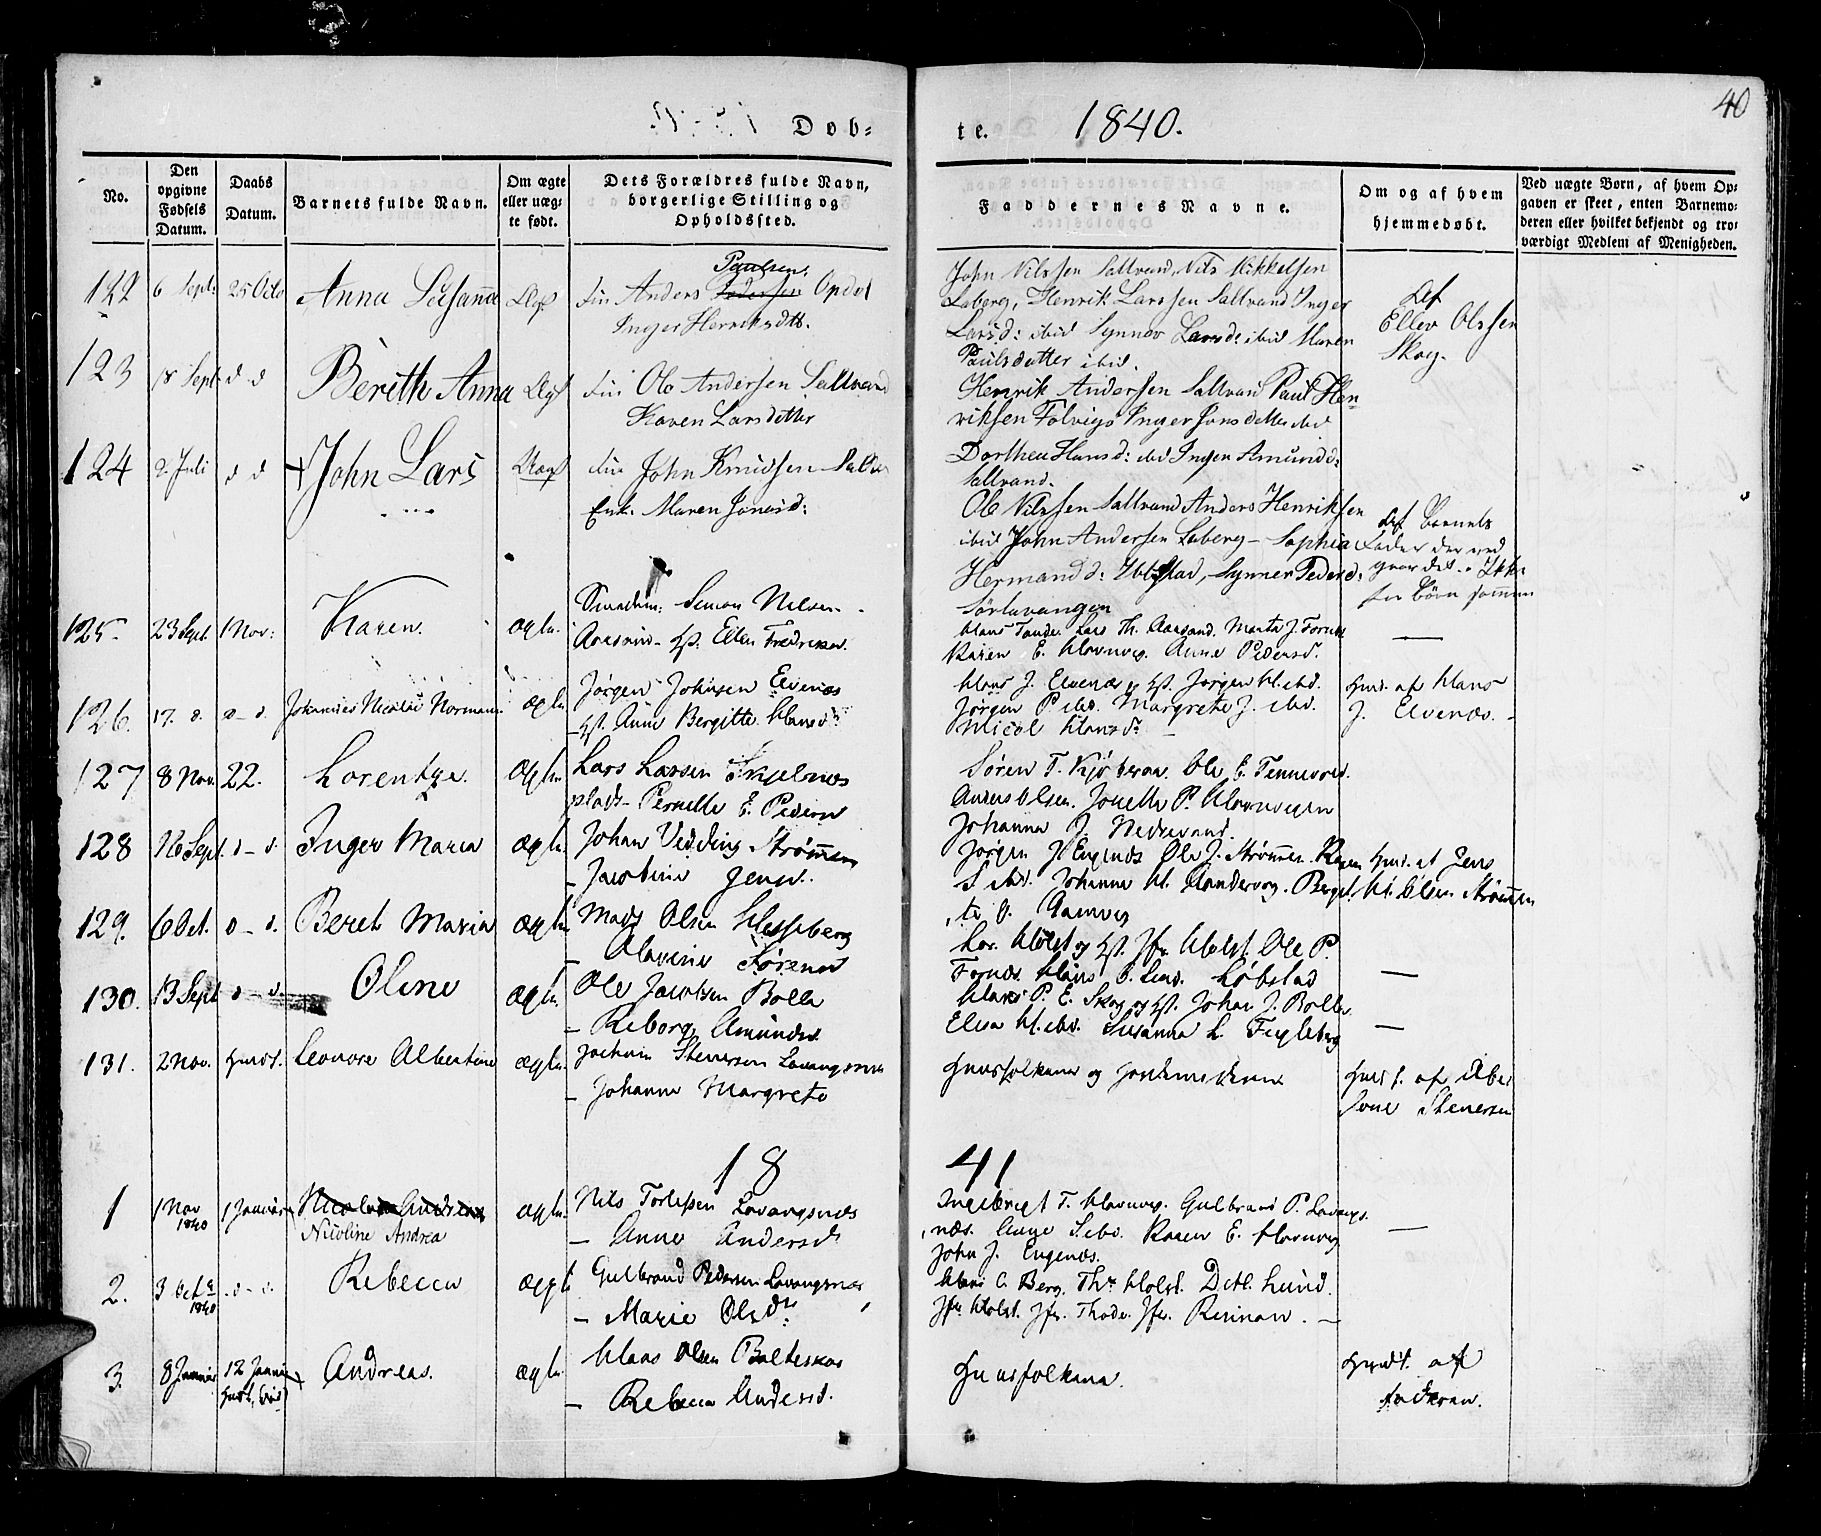 40
Døb=
te.
1840.
No.
Den opgivne Fødsels Datum.
Daabs Datum.
Barnets fulde Navn.
Om ægte eller uæg-te født.
Dets Forældres fulde Navn, borgerlige Stilling og Opholdssted.
Faddernes Navne.
Om og af hvem hjemmedøbt.
Ved uægte Børn, af hvem Op-gaven er skeet, enten Barnemo-deren eller hvilket bekjendt og tro-værdigt Medlem af Menigheden.
122 6 Sept: 25 Octo Anna Susanna
Paulsen.
Anders Pedersen Opdal
Inger Henriksdtt.
John Nilssen Saltvand, Nils Mikkelsen
Laberg, Henrik Larssen Saltvand Inger
Larsd: ibid Synnøv Larsd: ibid Maren
Paulsdatter ibid.
Ellev Olssen
Skog.
123 18 Sept d d Berith Anna
Ole Andersen Saltvand
Karen Larsdatter
Henrik Andersen Saltvand Paul Hen-
riksen Folvigs Inger Jonsdatter ibid
Dorthea Hansd: ibid Inger Amundd:
Saltvand.
124 2 Juli d d John Lars
John Knudsen
Enk. Maren Jonasd:
Ole Nilssen Saltvand Anders Henriksen
ibid John Andersen Laberg – Sophia
Hermandd: Ibbestad, Synner Pedersd:
Sørlavangen
Barnets
Fader
125. 23 Sept. 1 Nov: Karen. ægte.
Simon Nilsen
Ellen Fredriksd.
Hans Tande. Lars Th. Aarsand. Marta J. Fornes
Karen E. Havnvig. Anne Pedersd.
126. 17. d. d – d. Johannes Nicolai Normann. ægte.
Jørgen Johnsen Elvenæs
Anne Bergitte Hansd:
Hans J. Elvenæs og Hst. Jørgen H. ibd.
Jørgen P. ibd. Margrete J. ibd.
Nicol Hansdr
Hmd. af Hans
J. Elvenæs.
127 8 Nov. 22. Lorentze. ægte.
Lars Larsen Skjelnes
plads – Pernelle E. Pedersd
Søren T. Ole E. Tennevold.
Anders Olsen. Jonetta P. Havnvigen
Johanna J. Nedrevand.
128 16 Sept. d – d. Inger Maria ægte.
Johan Vedding Strømmen
– Jacobine Jensd.
Jørgen J. Engenæs Ole J. Strømmen. Karen
S. ibd. Johanna H. Sandvorg. Bergit-
te J. Gamvig
Hmd. af Jens
H. Olsen Strømmen
129. 6 Oct. d – d. Beret Maria ægte.
Mads Olsen Hesseberg
– Olavine Sørensd
Lor. Holst og Hst. Jfr. Holst. Ole P.
Fornæs. Hans P. Lund. Løbstad
130. 13 Sept d – d. Oline ægte.
Ole Jacobsen Bolla
– Reborg Amundsd.
Hans P. E. Skog og Hst. Johan J. Bolla
Elisa H. ibd. Susanna L. Fugleberg
131. 2 Nov. Hmdt. Leonore Albertine ægte.
Jochum Stenersen Lavangsnæs
– Johanna Margrete
Huusfolkene og Jordemoderen
Hmd t. af
Stenersen
18 41
1 1 Nov 1840 1 Januar Nicoline Andrea ægte.
Nils Torlefsen Lavangsnæs
– Anne Andersd.
Ingebrigt T. Havnvig. Gulbrand P. Lavangs-
næs. Anne S. ibd. Karen E. Havnvig
John J. Engenæs.
2. 3 Octr 1840 d – d. Rebecca ægte
Gulbrand Pedersen Lavangsnæs
– Marie Olsdtr:
Hans C. Berg. Th. Holst. Ditl. Lund.
Jfr. Holst. Jfr. Thode. Jfr. Rinnan.
3. 8 Januar 12 Januar Andreas. ægte.
Hans Olsen Balteskar
– Rebecca Andersd.
Huusfolkene.
Hmdt. af
Faderen.